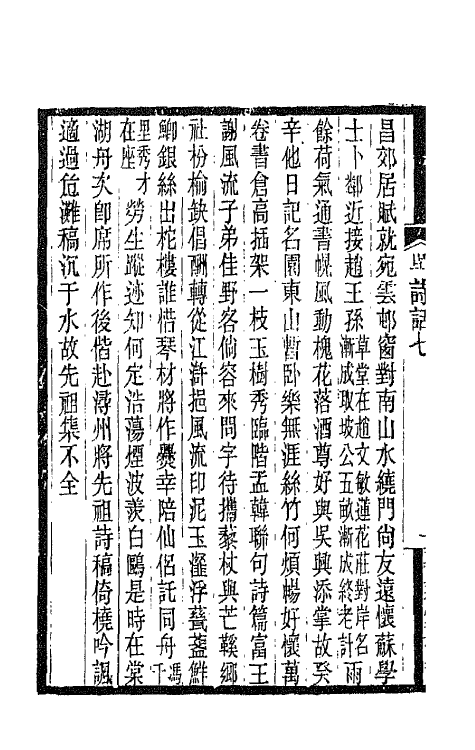 昌郊居賦就宛雲邨窗對南山水繞門尚友遠懷蘇學
士卜鄰近接趙王孫草堂在趙文敏蓮花莊對岸名漸成取坡公五畝漸成終老計雨
餘荷氣通書幌風動槐花落酒尊好與吳興添掌故癸
辛他日記名園東山暫臥樂無涯絲竹何煩暢好懷萬
卷書倉高插架一枝玉樹秀臨階孟韓聯句詩篇富王
謝風流子弟佳野客倘容來問字待攜藜杖與芒鞵鄉
社枌榆缺倡酬轉從江滸挹風流印泥玉瀣浮甆盞鮮
鯽銀絲出柁樓誰惜琴材將作爨幸陪仙侶託同舟馮千
里秀才在座勞生蹤迹知何定浩蕩煙波羨白鷗是時在棠
湖舟次卽席所作後偕赴潯州將先祖詩稿倚橈吟諷
適過危灘稿沉于水故先祖集不全
詩話七